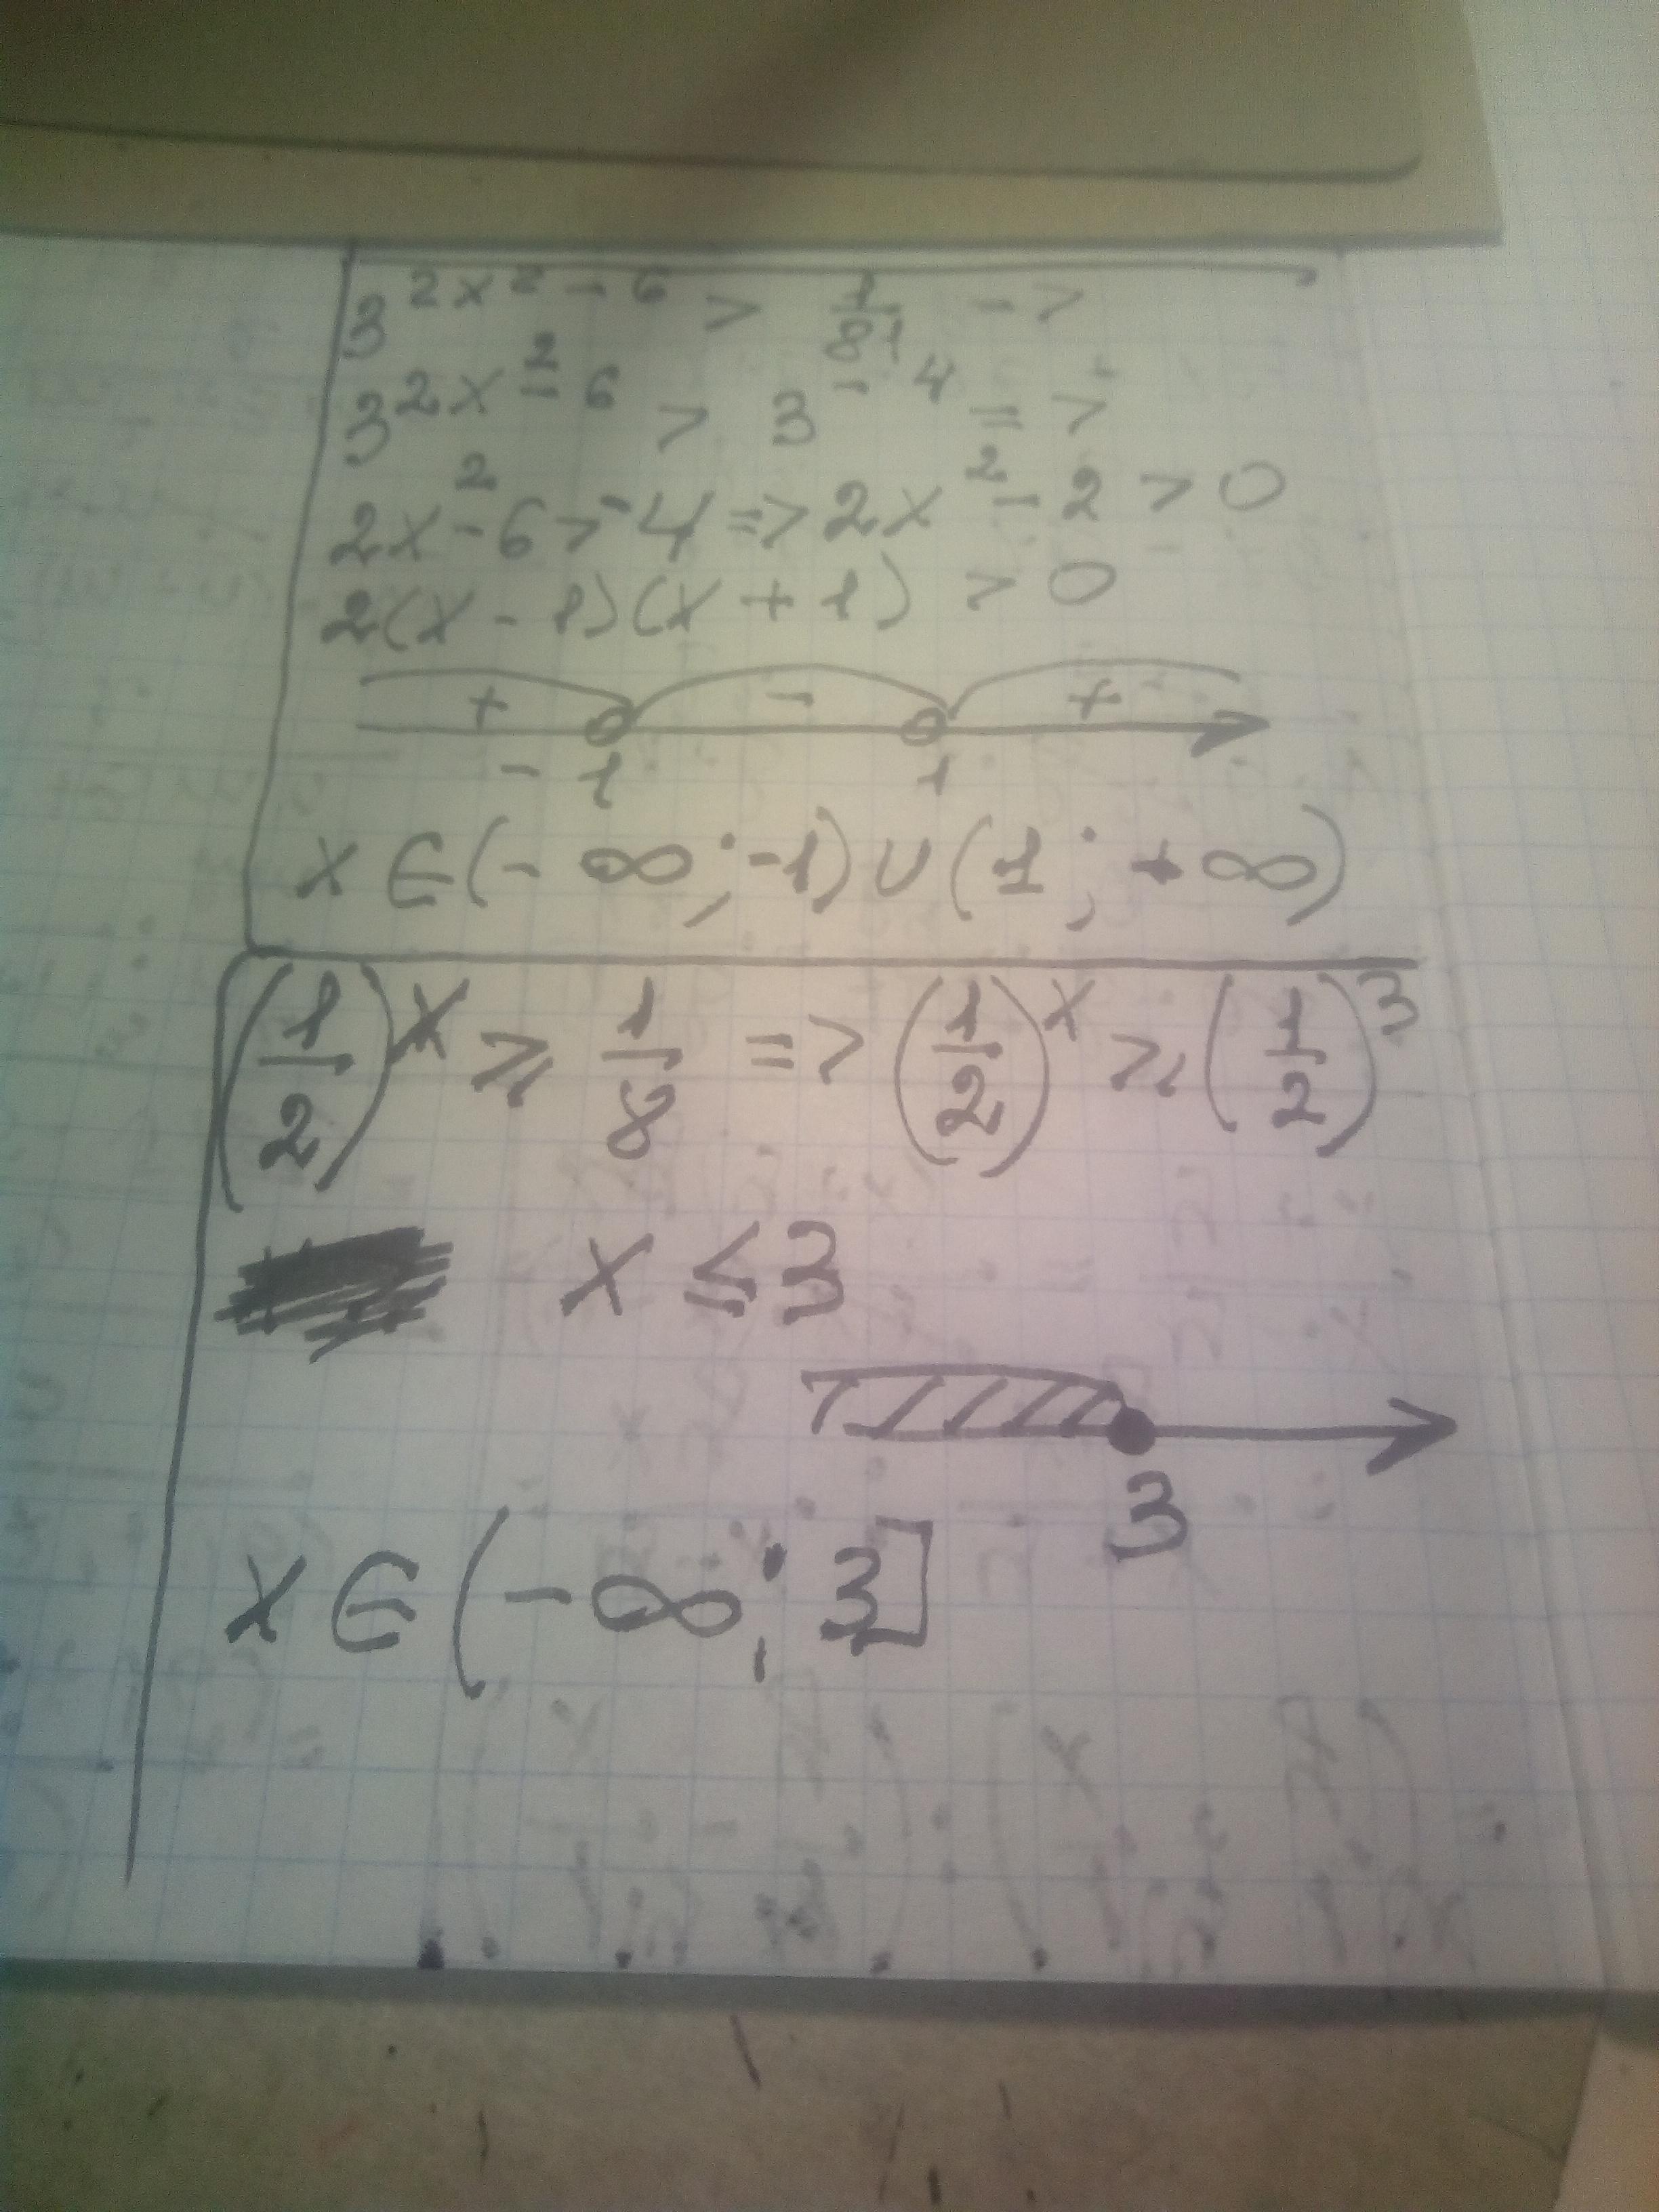 3^{2x^2-6} > \frac{1}{81} ->
3^{2x^2-6} > 3^{-4} =>
2x^2-6>-4=>2x^2-2>0
2(x-1)(x+1)>0
+ - +
-1 1
x∈(-∞;-1)∪(1;+∞)
(\frac{1}{2})^x ⩾ \frac{1}{8} => (\frac{1}{2})^x ⩾ (\frac{1}{2})^3
x ≤ 3
3
x∈(-∞;3]